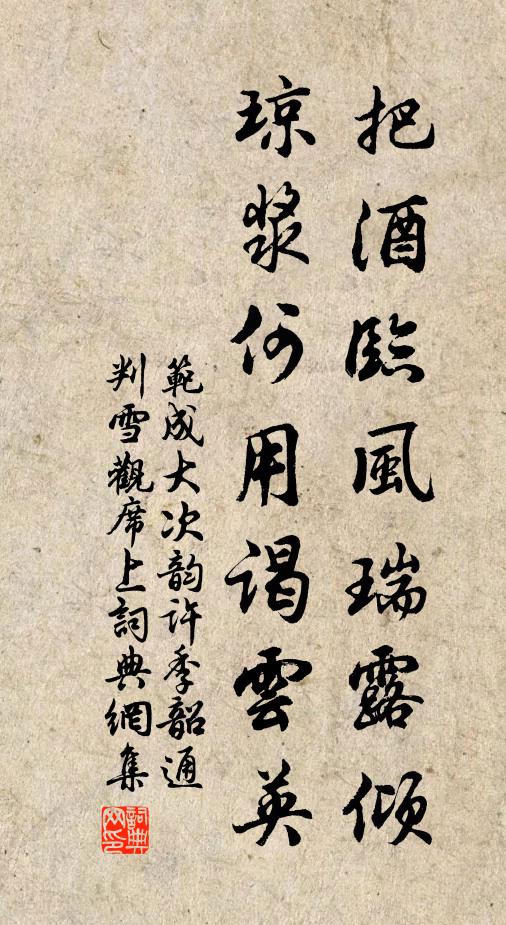 把酒臨風瑞露傾
瓊漿何用謁雲英
範成大次韵許季韶通
判雪觀席上詞典網集
詞典
网印